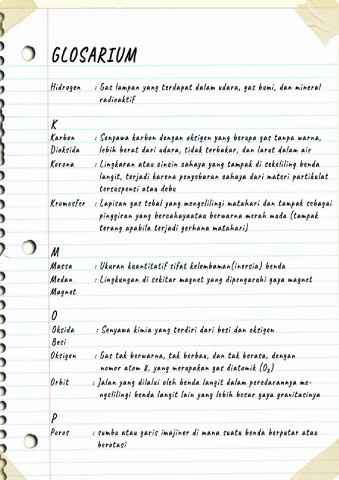 GLOSARIUM
Hidrogen : Gas lampan yang terdapat dalam udara, gas bumi, dan mineral
radioaktif
K
Karbon : Senyawa karbon dengan oksigen yang berupa gas tanpa warna,
Dioksida lebih berat dari udara, tidak terbakar, dan larut dalam air
Korona : Lingkaran atau cincin cahaya yang tampak di sekeliling benda
langit, terjadi karena penyebaran cahaya dari materi partikulat
tersuspensi atau debu
Kromosfer : Lapisan gas tebal yang mengelilingi matahari dan tampak sebagai
pinggiran yang bercahayaatau berwarna merah muda (tampak
terang apabila terjadi gerhana matahari)
M
Massa : Ukuran kuantitatif sifat kelembaman(inersia) benda
Medan : Lingkungan di sekitar magnet yang dipengaruhi gaya magnet
Magnet
O
Oksida : Senyawa kimia yang terdiri dari besi dan oksigen
Besi
Oksigen : Gas tak berwarna, tak berbau, dan tak berasa, dengan
nomor atom 8, yang merupakan gas diatomik (O₂)
Orbit : Jalan yang dilalui oleh benda langit dalam peredarannya me-
ngelilingi benda langit lain yang lebih besar gaya gravitasinya
P
Poros : sumbu atau garis imajiner di mana suatu benda berputar atau
berotasi